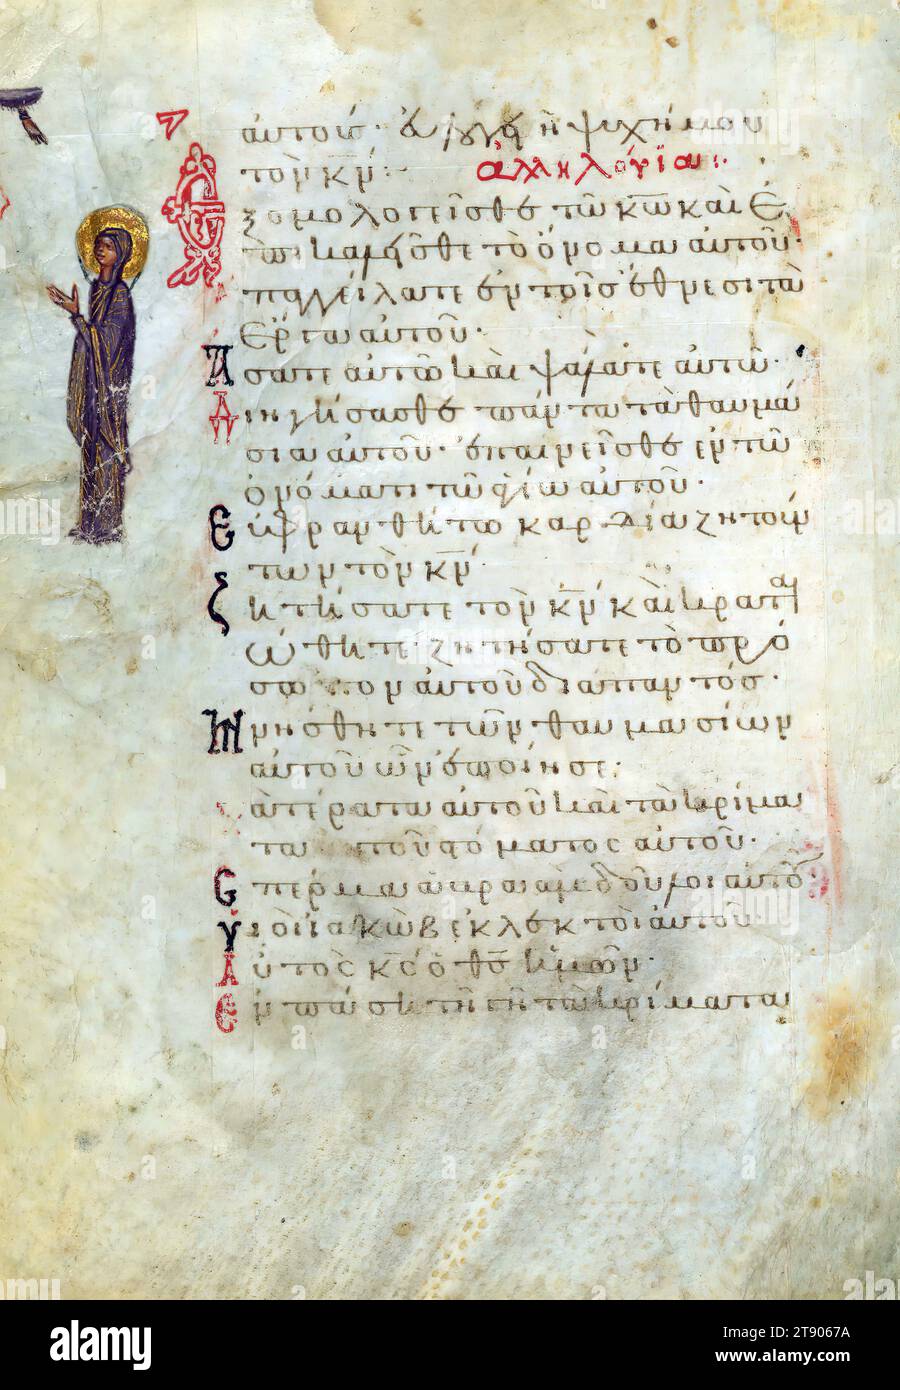 αὐτοῦ· εὐλόγει ἡ ψυχή μου
τὸν κ̅ν̅:
ἀλληλούϊα:
Ἐξομολογεῖσθε τῶ κ̅ω̅ καὶ ἐ
πικαλεῖσθε τὸ ὄνομα αὐτοῦ·
ἀπαγγείλατε ἐν τοῖς ἔθνεσι τὰ
ἔργα αὐτοῦ·
Ἄσατε αὐτῶ καὶ ψάλατε αὐτῶ·
Διηγήσασθε πάντα τὰ θαυμά
σια αὐτοῦ· ἐπαινεῖσθε ἐν τῶ
ὀνόματι τῶ ἁγίω αὐτοῦ·
Εὐφρανθήτω καρδία ζητούν
των τὸν κ̅ν̅·
Ζητήσατε τὸν κ̅ν̅ καὶ κραται
ώθητε· ζητήσατε τὸ πρό
σωπον αὐτοῦ διαπαντός·
Μνήσθητε τῶν θαυμασίων
αὐτοῦ ὧν ἐποίησε·
τὰ τέρατα αὐτοῦ καὶ τὰ κρίμα
τα τοῦ στόματος αὐτοῦ·
Σπέρμα ἀβραὰμ δοῦλοι αὐτοῦ·
Υἱοὶ ἰακὼβ ἐκλεκτοὶ αὐτοῦ·
Αὐτὸς κ̅ς̅ ὁ θ̅ς̅ ἡμῶν·
Ἐν πάση τῆ γῆ τὰ κρίματα
alamy
Image ID: 2T9067A
www.alamy.com